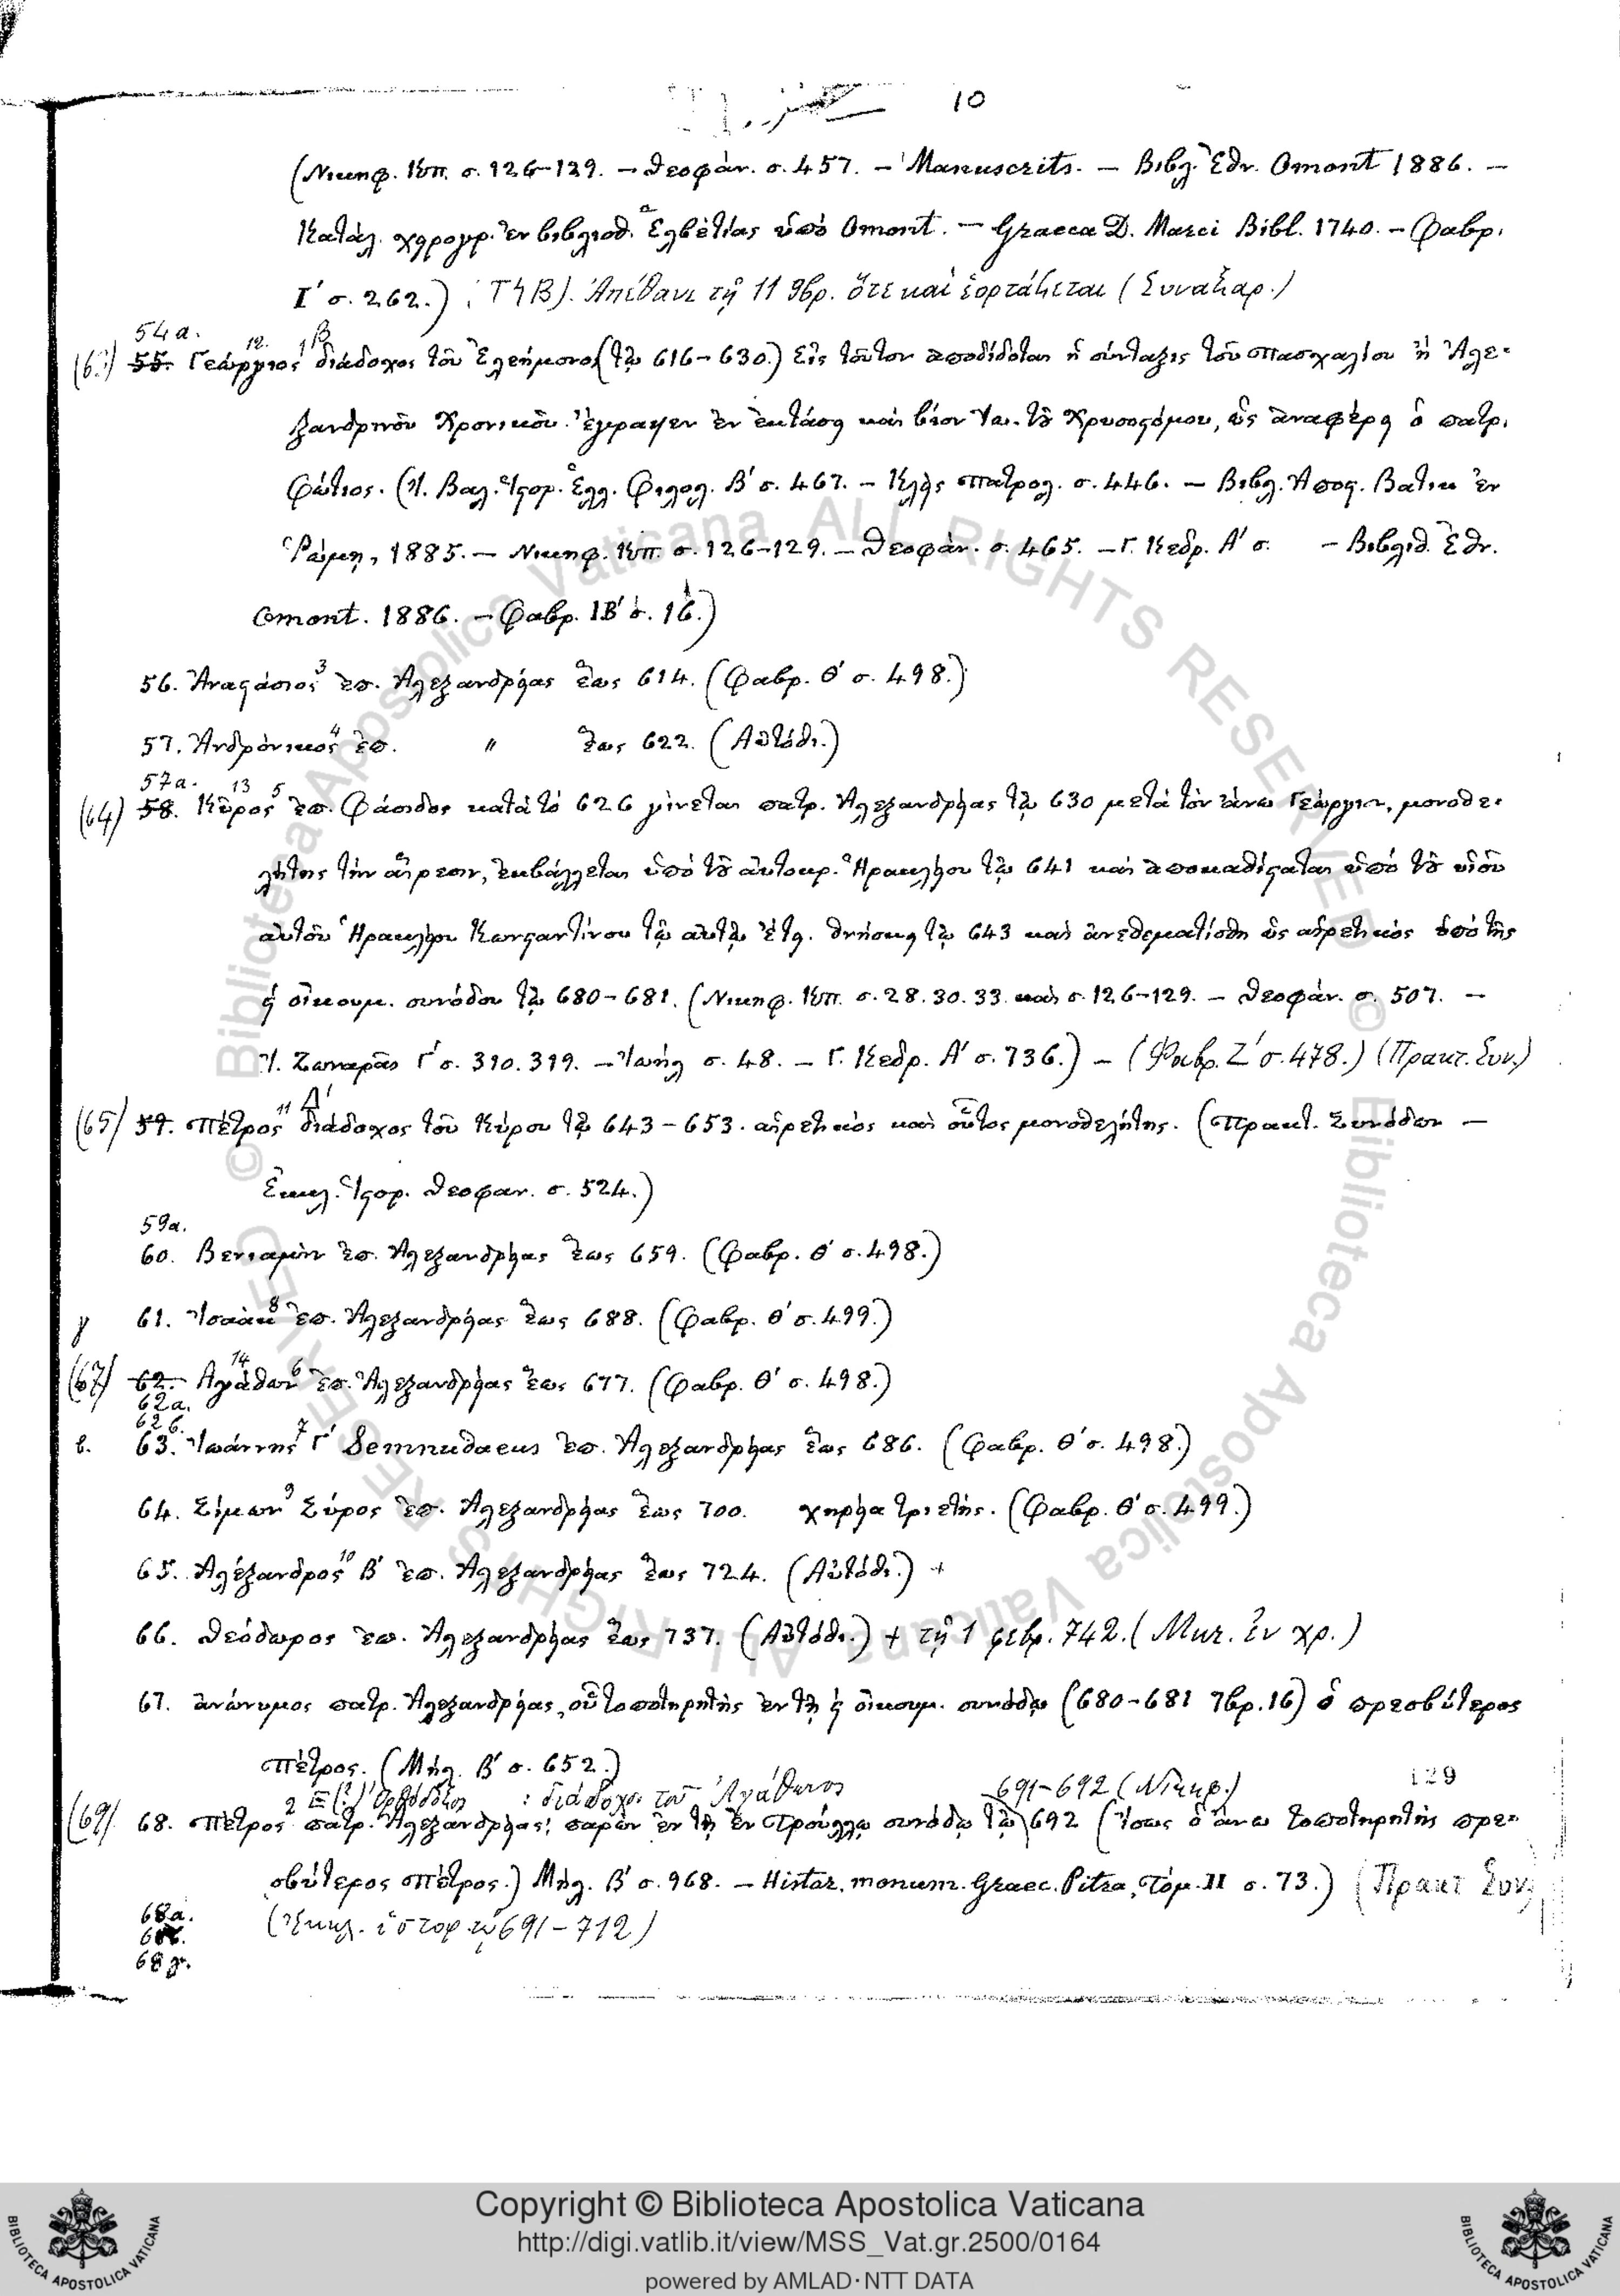 10
(Νικηφ. Κπ. σ. 126-129. – Θεοφάν. σ. 457. – Manuscrits. – Βιβλ. Ἐθν. Omont 1886. –
Κατάλ. χειρογρ. ἐν βιβλιοθ. Ἑλβετίας ὑπὸ Omont. – Graeca D. Marci Bibl. 1740. – Φαβρ.
Ι΄ σ. 262.) Ἀπέθανε τῇ 11 9βρ. ὅτε καὶ ἑορτάζεται (Συναξαρ.)
54α.
(63) 55. Γεώργιος 12. 1 β διάδοχος τοῦ Ἐλεήμονος (τῷ 616-630.) Εἰς τοῦτον ἀποδίδοται ἡ σύνταξις τοῦ πασχαλίου ἢ Ἀλε-
ξανδρινοῦ Χρονικοῦ. Ἔγραψεν ἐν ἐκτάσει καὶ βίον Ἰω. τοῦ Χρυσοστόμου, ὡς ἀναφέρει ὁ πατρ.
Φώτιος. (Ἰ. Βαλ. Ἱστορ. Ἑλλ. Φιλολ. Β΄ σ. 467. – Κλεὶς πατρολ. σ. 446. – Βιβλ. Ἀποστ. Βατικ ἐν
Ῥώμῃ, 1885. – Νικηφ. Κπ. σ. 126-129. – Θεοφάν. σ. 465. – Γ. Κεδρ. Α΄ σ. – Βιβλιοθ. Ἐθν.
Omont. 1886. – Φαβρ. ΙΒ΄ σ. 16.)
56. Ἀναστάσιος 3 ἐπ. Ἀλεξανδρείας ἕως 614. (Φαβρ. Θ΄ σ. 498.)
57. Ἀνδρόνικος 4 ἐπ. " ἕως 622. (Αὐτόθι.)
57α. 13 5
(64) 58. Κῦρος ἐπ. Φάσιδος κατὰ τὸ 626 γίνεται πατρ. Ἀλεξανδρείας τῷ 630 μετὰ τὸν ἄνω Γεώργιον, μονοθε-
λήτης τὴν αἵρεσιν, ἐκβάλλεται ὑπὸ τοῦ αὐτοκρ. Ἡρακλείου τῷ 641 καὶ ἀποκαθίσταται ὑπὸ τοῦ υἱοῦ
αὐτοῦ Ἡρακλείου Κωνσταντίνου τῷ αὐτῷ ἔτει. θνήσκει τῷ 643 καὶ ἀνεθεματίσθη ὡς αἱρετικὸς ὑπὸ τῆς
ϛ΄ οἰκουμ. συνόδου τῷ 680-681. (Νικηφ. Κπ. σ. 28. 30. 33. καὶ σ. 126-129. – Θεοφάν. σ. 507. –
Ἰ. Ζωναρᾶς Γ΄ σ. 310. 319. – Ἰωὴλ σ. 48. – Γ. Κεδρ. Α΄ σ. 736.) – (Φαβρ. Ζ΄ σ. 478.) (Πρακτ. Συν.)
(65) 59. Πέτρος 11 Δ΄ διάδοχος τοῦ Κύρου τῷ 643-653. αἱρετικὸς καὶ οὗτος μονοθελήτης. (Πρακτ. Συνόδων –
Ἐκκλ. Ἱστορ. Θεοφαν. σ. 524.)
59α.
60. Βενιαμὶν ἐπ. Ἀλεξανδρείας ἕως 659. (Φαβρ. Θ΄ σ. 498.)
γ 61. Ἰσαὰκ 8 ἐπ. Ἀλεξανδρείας ἕως 688. (Φαβρ. Θ΄ σ. 499.)
(67) 62. Ἀγάθων 14 6 ἐπ. Ἀλεξανδρείας ἕως 677. (Φαβρ. Θ΄ σ. 498.)
62α.
62β.
β. 63. Ἰωάννης 7 Γ΄ Semnudaeus ἐπ. Ἀλεξανδρείας ἕως 686. (Φαβρ. Θ΄ σ. 498.)
64. Σίμων 9 Σύρος ἐπ. Ἀλεξανδρείας ἕως 700. χηρεία τριετής. (Φαβρ. Θ΄ σ. 499.)
65. Ἀλέξανδρος 10 Β΄ ἐπ. Ἀλεξανδρείας ἕως 724. (Αὐτόθι.) +
66. Θεόδωρος ἐπ. Ἀλεξανδρείας ἕως 737. (Αὐτόθι.) + τῇ 1 φεβρ. 742. (Μιχ. ἐν χρ.)
67. ἀνώνυμος πατρ. Ἀλεξανδρείας, οὗ τοποτηρητὴς ἐν τῇ ϛ΄ οἰκουμ. συνόδῳ (680-681 7βρ. 16) ὁ πρεσβύτερος
Πέτρος. (Μήλ. Β΄ σ. 652.)
2 Ξ(?) Ὀρθόδοξος : διάδοχος τοῦ Ἀγάθωνος 691-692 (Νικηφ.) 129
(69) 68. Πέτρος πατρ. Ἀλεξανδρείας, παρὼν ἐν τῇ ἐν Τρούλλῳ συνόδῳ τῷ 692 (Ἴσως ὁ ἄνω τοποτηρητὴς πρε-
σβύτερος Πέτρος.) Μήλ. Β΄ σ. 968. – Histor. monum. Graec. Pitra, Τόμ. II σ. 73.) (Πρακτ Συν.
68α. (Ἐκκλ. ἱστορ τῷ 691-712)
68β.
68γ.
© Biblioteca Apostolica Vaticana ALL RIGHTS RESERVED
© Biblioteca Apostolica Vaticana ALL RIGHTS RESERVED
Copyright © Biblioteca Apostolica Vaticana
http://digi.vatlib.it/view/MSS_Vat.gr.2500/0164
powered by AMLAD·NTT DATA
BIBLIOTECA APOSTOLICA VATICANA
BIBLIOTECA APOSTOLICA VATICANA